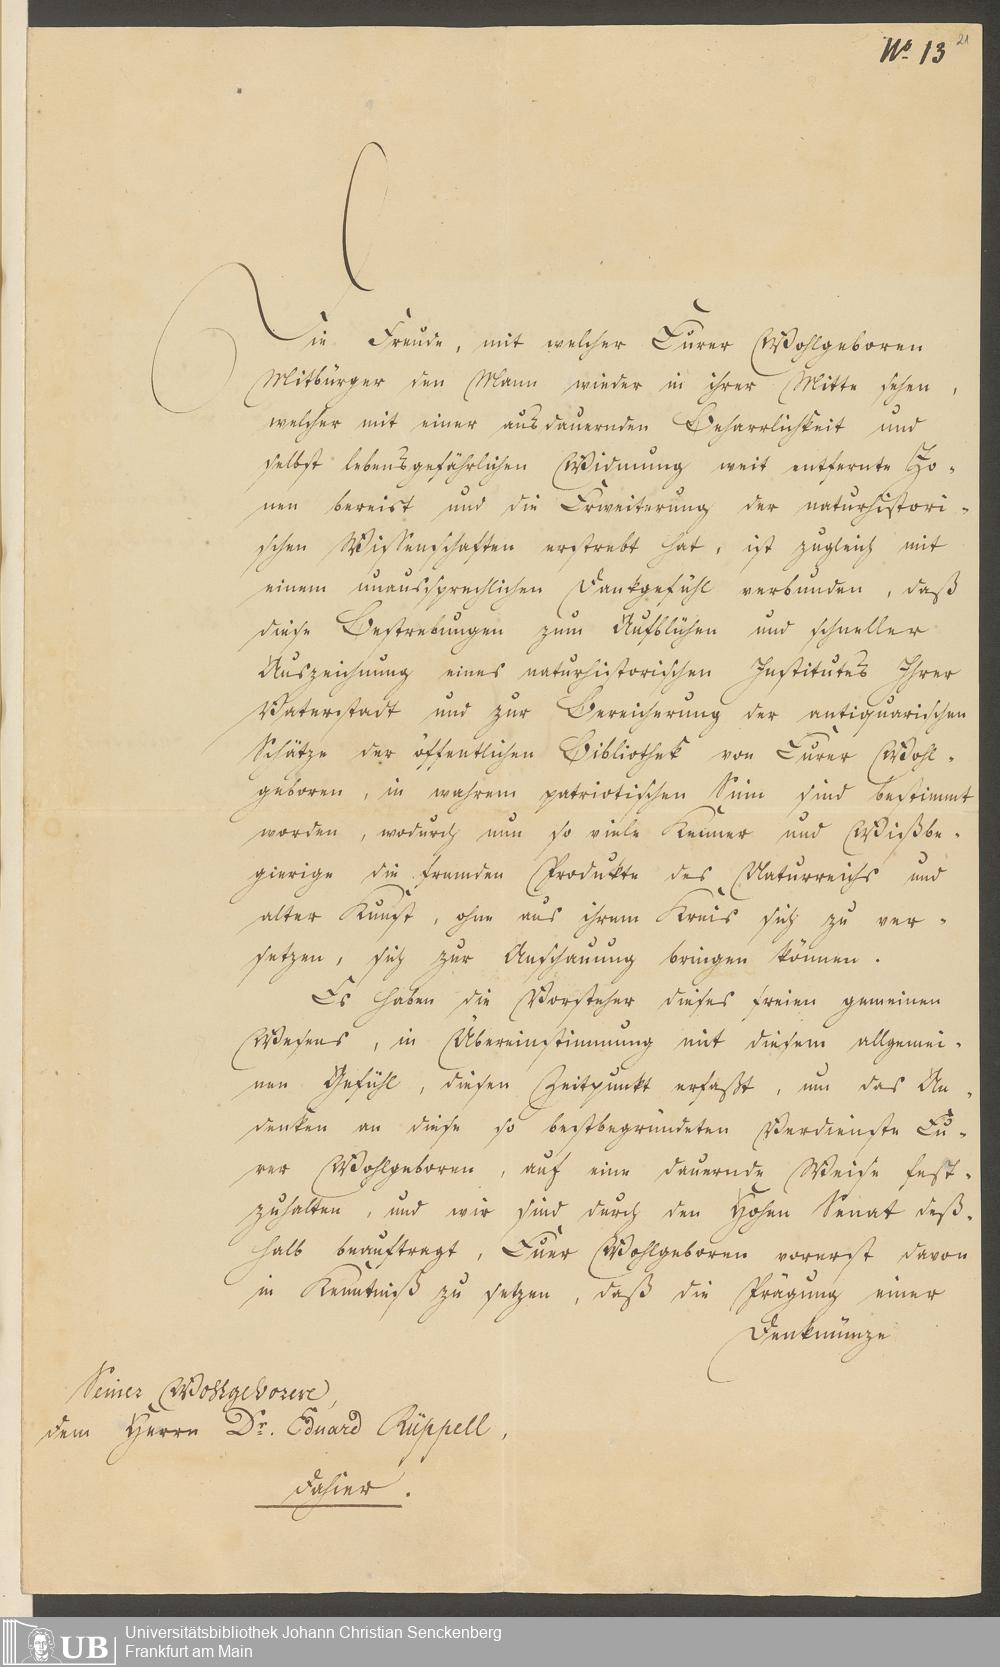 No. 13
21
Die Freude, mit welcher Eurer Wohlgeboren
Mitbürger den Mann wieder in ihrer Mitte sehen,
welcher mit einer ausdauernden Beharrlichkeit und
selbst lebensgefährlichen Widmung weit entfernte Zo-
nen bereist und die Erweiterung der naturhistori-
schen Wissenschaften erstrebt hat, ist zugleich mit
einem unaussprechlichen Dankgefühl verbunden, daß
diese Bestrebungen zum Aufblühen und schneller
Auszeichnung eines naturhistorischen Institutes Ihrer
Vaterstadt und zur Bereicherung der antiquarischen
Schätze der öffentlichen Bibliothek von Eurer Wohl-
geboren, in wahrem patriotischen Sinn sind bestimmt
worden, wodurch nun so viele Kenner und Wißbe-
gierige die fremden Produkte des Naturreichs und
alter Kunst, ohne aus ihrem Kreis sich zu ver-
setzen, sich zur Anschauung bringen können.
Es haben die Vorsteher dieses freien gemeinen
Wesens, in Übereinstimmung mit diesem allgemei-
nen Gefühl, diesen Zeitpunkt erfaßt, um das An-
denken an diese so bestbegründeten Verdienste Eu-
rer Wohlgeboren, auf eine dauernde Weise fest-
zuhalten, und wir sind durch den Hohen Senat deß-
halb beauftragt, Euer Wohlgeboren vorerst davon
in Kenntniß zu setzen, daß die Prägung einer
Denkmünze
Seiner Wohlgeboren,
dem Herrn Dr. Eduard Rüppell,
dahier.
UB
Universitätsbibliothek Johann Christian Senckenberg
Frankfurt am Main